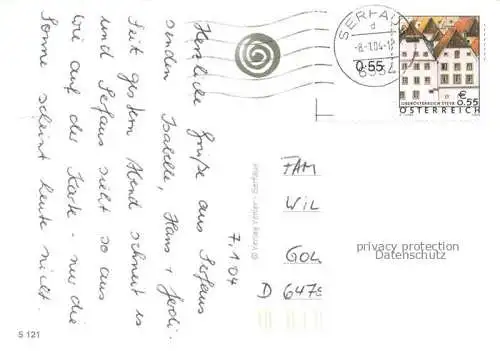 7.1.04
Herzliche Grüße aus Serfaus
senden Isabelle, Hans + Ferdi.
Seit gestern Abend schneit es
und Serfaus sieht so aus
wie auf der Karte - nur die
Sonne scheint heute nicht.
SERFAUS
d
-8.-1.04-1
6534
0.55
€ 0.55
OBERÖSTERREICH STEYR
ÖSTERREICH
© Verlag Yetter - Serfaus
FAM
WIL
GOL
D 6478
privacy protection
Datenschutz
S 121